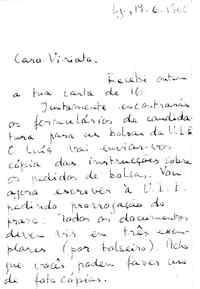 19.6.1962
Caro Viriato.
Recebi ontem
a tua carta de 16.
Juntamente encontrarás
os formulários da candida
tura para as bolsas da U.I.E.
O Luís vai enviar-vos
cópia das instrucções sobre
os pedidos de bolsa. Vou
agora escrever à U.I.E.
pedindo prorrogação do
prazo. Todos os documentos
devem vir em três exem-
plares (por bolseiro). Acho
que vocês podem fazer uso
de fotocópias.